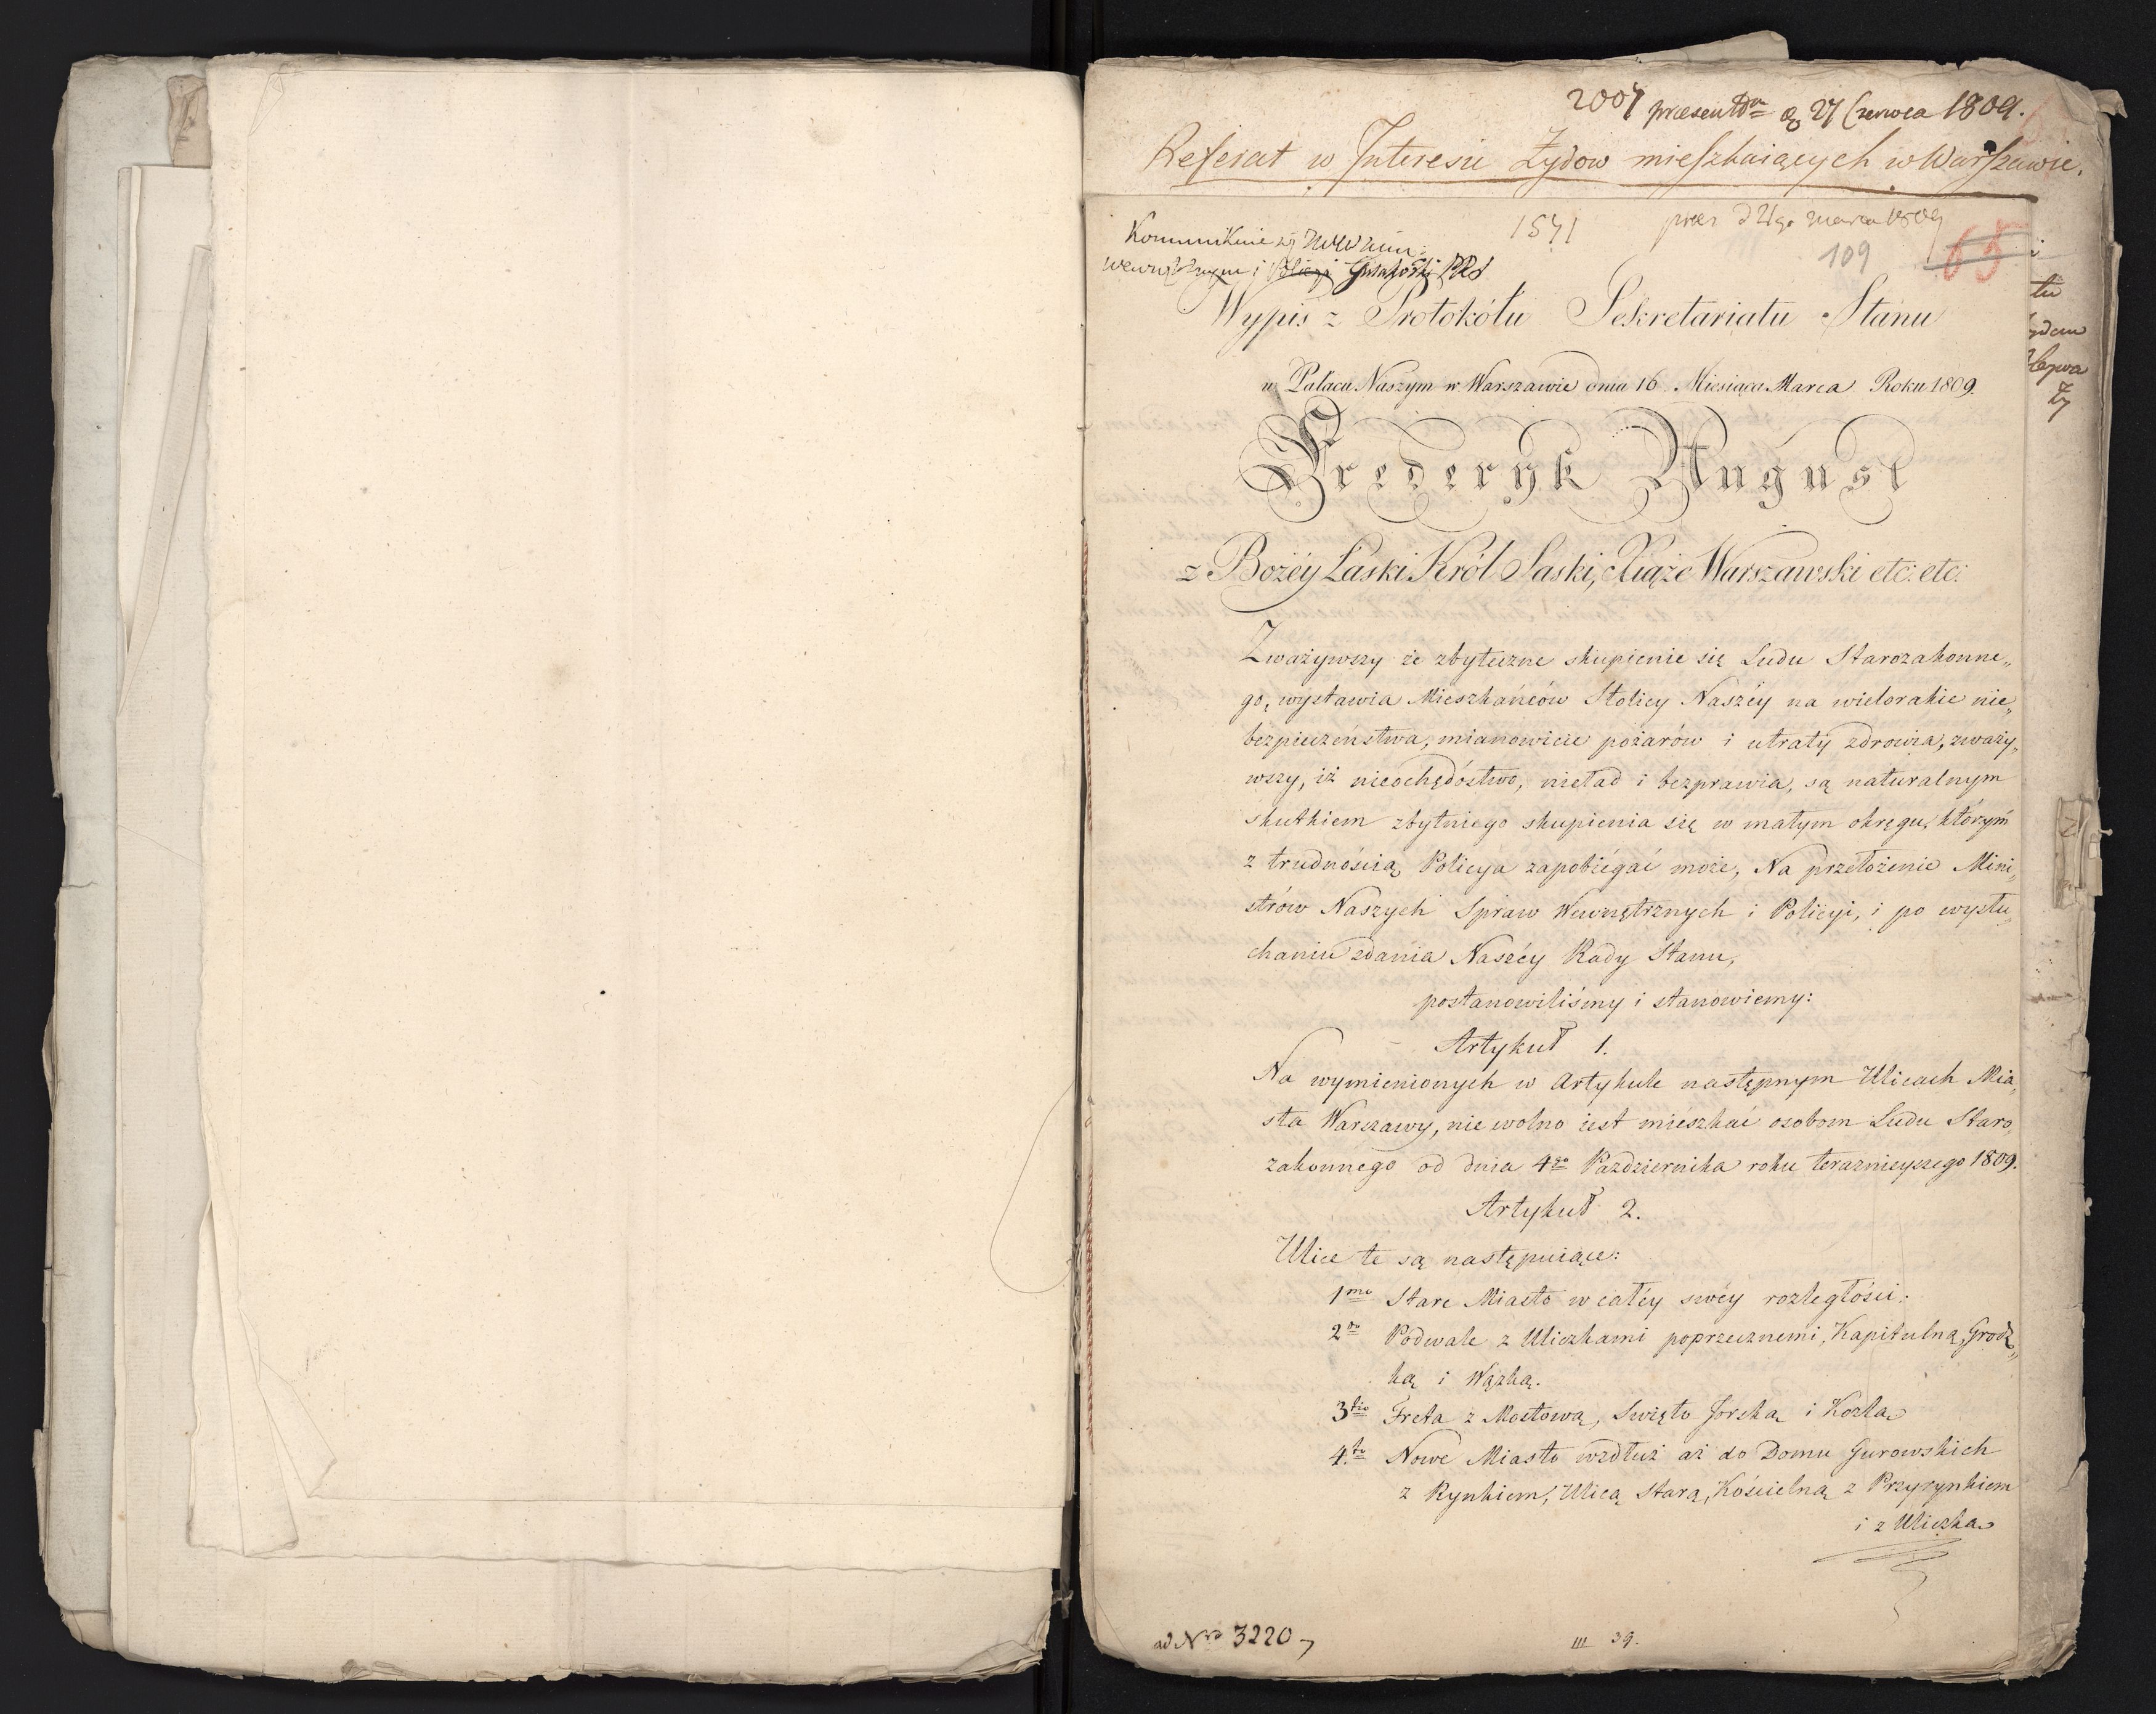 2007 praesentm d. 27 Czerwca 1809.
Referat w Interesie Żydow mieszkaiących w Warszawie.
1571
109
65
Wypis z Protokółu Sekretariatu Stanu
w Pałacu Naszym w Warszawie dnia 16. Miesiąca Marca Roku 1809.
Fryderyk August
z Bożéy Łaski Król Saski, Xiąże Warszawski etc: etc:
Zważywszy że zbyteczne skupienie się Ludu Starozakonne„
go, wystawia Mieszkańców Stolicy Naszéy na wielorakie nie„
bezpieczeństwa, mianowicie pożarów i utraty zdrowia, zważy„
wszy, iż nieochędóstwo, nieład i bezprawia, są naturalnym
skutkiem zbytniego skupienia się w małym okręgu, którym
z trudnością Policya zapobiégać może, Na przełożenie Mini„
strów Naszych Spraw Wewnętrznych i Policyi, i po wysłu„
chaniu zdania Naszéy Rady Stanu,
postanowiliśmy i stanowiemy:
Artykuł 1.
Na wymienionych w Artykule następnym Ulicach Mia„
sta Warszawy, nie wolno iest mieszkać osobom Ludu Staro„
zakonnego od dnia 4go Pazdziernika roku teraznieyszego 1809.
Artykuł 2.
Ulice te są następuiące:
1mo Stare Miasto w całéy swéy rozległości.
2do Podwale z Uliczkami poprzecznemi, Kapitulną, Grodz„
ką i Wązką.
3tio Freta z Mostową, Swięto Jorską i Kozlą
4to Nowe Miasto wzdłuż aż do Domu Gurowskich
z Rynkiem, Ulicą Starą, Kościelną z Przyrynkiem
i z Uliczką
ad Nro 3220
III 39.